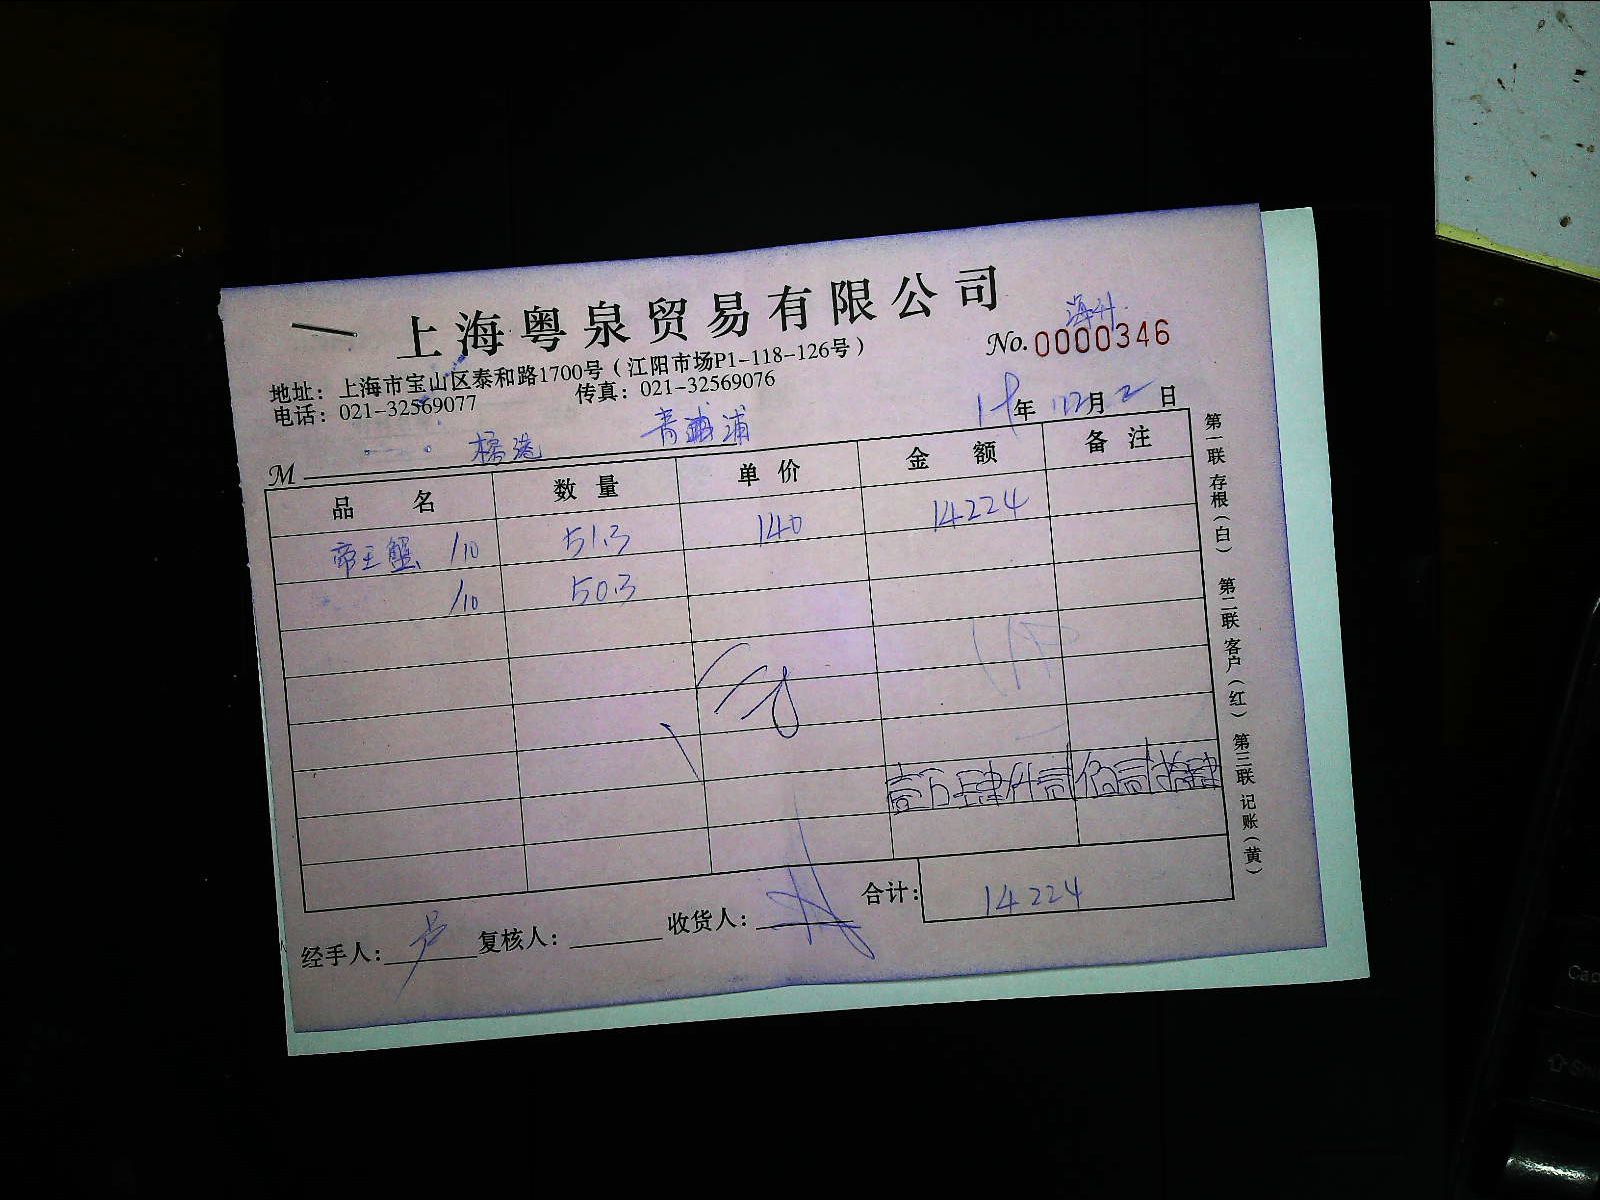 上海粤泉贸易有限公司
海升
No. 0000346
地址：上海市宝山区泰和路1700号（江阳市场P1-118-126号）
电话：021-32569077 传真：021-32569076
年 12月2日
M 青浦
品名 数量 单价 金额 备注
帝王蟹 /10 51.3 140 14224
/10 50.3
壹万肆仟贰佰贰拾肆
合计：14224
经手人：卢 复核人： 收货人：
第一联 存根（白） 第二联 客户（红） 第三联 记账（黄）